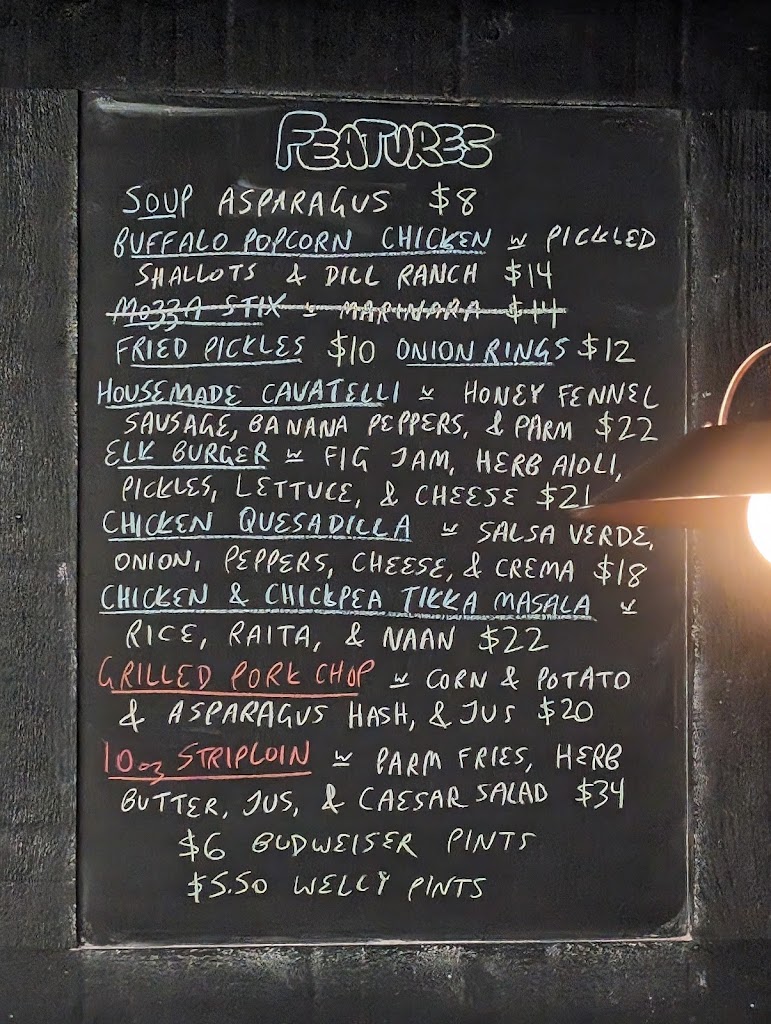 FEATURES
SOUP ASPARAGUS $8
BUFFALO POPCORN CHICKEN w PICKLED
SHALLOTS & DILL RANCH $14
MOZZA STIX w MARINARA $14
FRIED PICKLES $10 ONION RINGS $12
HOUSEMADE CAVATELLI w HONEY FENNEL
SAUSAGE, BANANA PEPPERS, & PARM $22
ELK BURGER w FIG JAM, HERB AIOLI,
PICKLES, LETTUCE, & CHEESE $21
CHICKEN QUESADILLA w SALSA VERDE,
ONION, PEPPERS, CHEESE, & CREMA $18
CHICKEN & CHICKPEA TIKKA MASALA w
RICE, RAITA, & NAAN $22
GRILLED PORK CHOP w CORN & POTATO
& ASPARAGUS HASH, & JUS $20
10oz STRIPLOIN w PARM FRIES, HERB
BUTTER, JUS, & CAESAR SALAD $34
$6 BUDWEISER PINTS
$5.50 WELLY PINTS